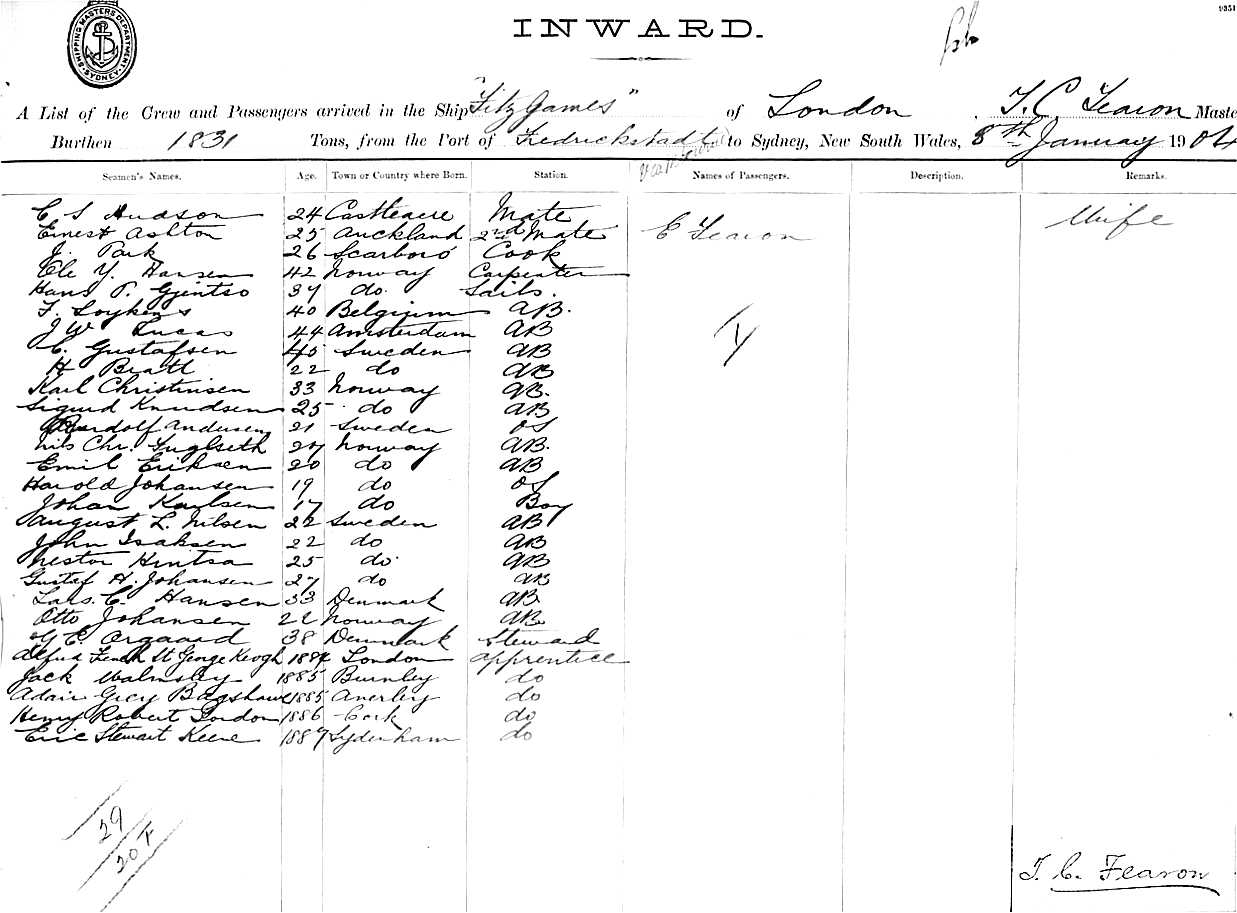 9351
SHIPPING MASTERS DEPARTMENT SYDNEY
INWARD.
A List of the Crew and Passengers arrived in the Ship "Fitz James" of London , T. C Fearon Maste
Burthen 1831 Tons, from the Port of Fredrickstadt to Sydney, New South Wales, 8th January 1904
Seamen's Names. Age. Town or Country where Born. Station. Names of Passengers. Description. Remarks.
C S Hudson 24 Castleacre Mate Wife
Ernest Ashton 25 Auckland 2nd Mate E Fearon
J. Park 26 Scarboro Cook
Ole Y. Hansen 42 Norway Carpenter
Hans P. Gjentso 37 do. Sails.
F. Soykens 40 Belgium AB.
J W Lucas 44 Amsterdam AB
C. Gustafsen 45 Sweden AB
H Bratt 22 do AB
Karl Christinsen 33 Norway AB.
Sigurd Knudsen 25 do AB
Andersen 21 Sweden OS
Nils Chr. 27 Norway AB.
Emil Eriksen 20 do AB
Harold Johansen 19 do OS
Johan Karlsen 17 do Boy
August L. Nilsen 22 Sweden AB
John Isaksen 22 do AB
Nestor Hintsa 25 do AB
Gustaf H. Johansen 27 do AB
Lars. C. Hansen 33 Denmark AB.
Otto Johansen 22 Norway AB.
E. Orgaard 38 Denmark Steward
Alfred French St George Keogh 1884 London Apprentice
Jack Walmsley 1885 Burnley do
Adair Grey Bagshawe 1885 Anerley do
Henry Robert Gordon 1886 Cork do
Eric Stewart Keene 1887 Sydenham do
29
20 F
T. C. Fearon